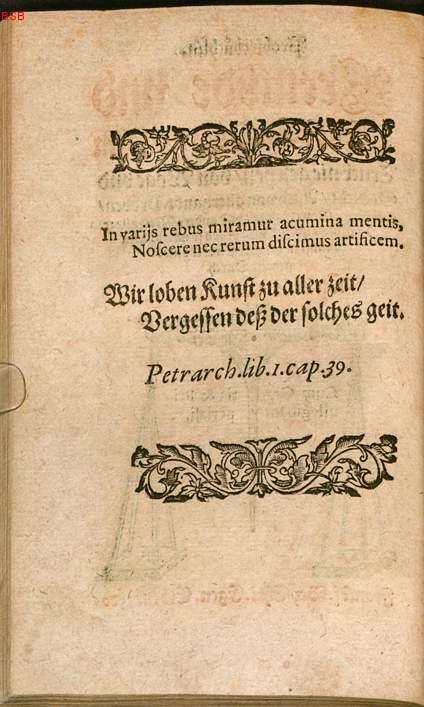 BSB
In varijs rebus miramur acumina mentis,
Noscere nec rerum discimus artificem.
Wir loben Kunst zu aller zeit/
Vergessen deß der solches geit.
Petrarch.lib.1.cap.39.